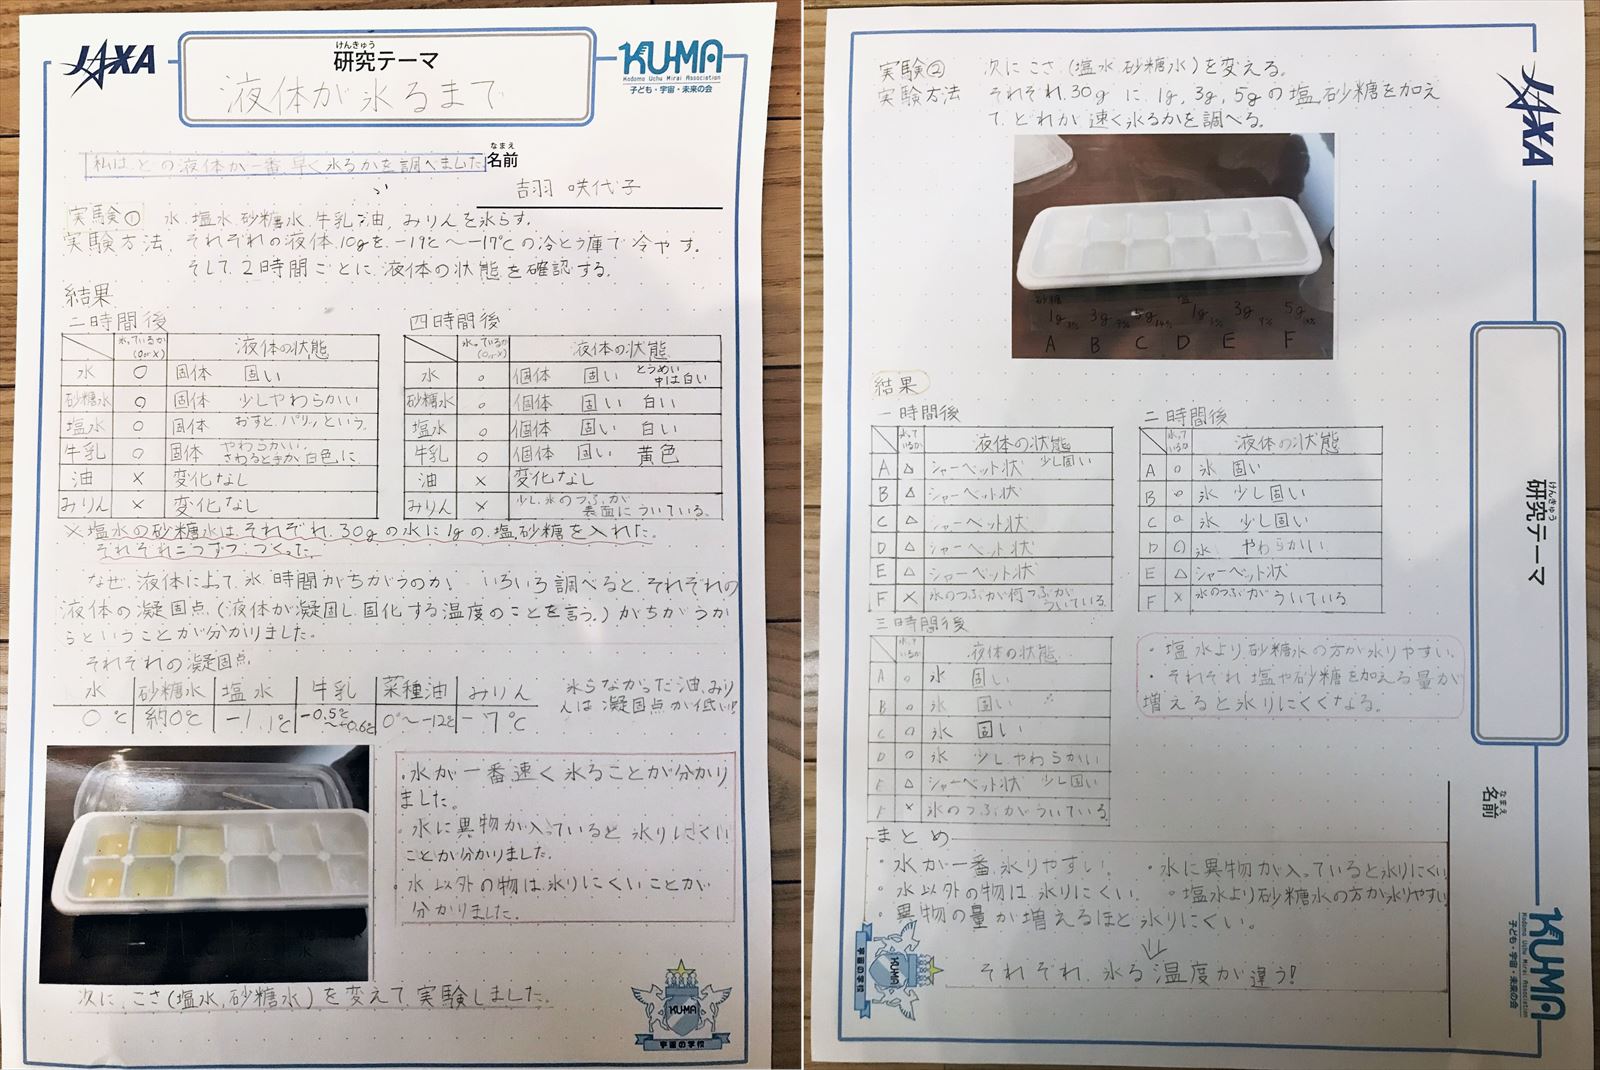 JAXA
けんきゅう
研究テーマ
液体が氷るまで
KU-MA
Kodomo Uchu Mirai Association
子ども・宇宙・未来の会
私は、どの液体が一番早く氷るかを調べました
なまえ
名前
実験① 水、塩水、砂糖水、牛乳、油、みりんを氷らす。
実験方法 それぞれの液体10gを、-19℃~-17℃の冷とう庫で冷やす。
そして、2時間ごとに、液体の状態を確認する。
結果
二時間後
氷っているか(○or×) 液体の状態
水 ○ 固体 固い
砂糖水 ○ 固体 少しやわらかい
塩水 ○ 固体 おすと、パリッという。
牛乳 ○ 固体 やわらかい。さわると手が白色に
油 × 変化なし
みりん × 変化なし
四時間後
氷っているか(○or×) 液体の状態
水 ○ 個体 固い とうめい 中は白い
砂糖水 ○ 個体 固い 白い
塩水 ○ 個体 固い 白い
牛乳 ○ 個体 固い 黄色
油 × 変化なし
みりん × 少し、氷のつぶが表面にういている。
×塩水の砂糖水は、それぞれ、30gの水に1gの塩、砂糖を入れた。
それぞれ二つずつ、つくった。
なぜ、液体によって、氷る時間がちがうのか! いろいろ調べると、それぞれの
液体の凝固点(液体が凝固し、固化する温度のことを言う。)がちがうか
らということが分かりました。
それぞれの凝固点
水 砂糖水 塩水 牛乳 菜種油 みりん
0℃ 約0℃ -1.1℃ -0.5℃~-0.6℃ 0°~-12℃ -7℃
氷らなかった油、みり
んは凝固点が低い!!
・水が一番速く氷ることが分かり
ました。
・水に異物が入っていると氷りにくい
ことが分かりました。
・水以外の物は、氷りにくいことが
分かりました。
次に、こさ(塩水、砂糖水)を変えて、実験しました。
KU-MA
宇宙の学校
実験② 次にこさ(塩水、砂糖水)を変える。
実験方法 それぞれ、30gに、1g,3g,5gの塩、砂糖を加え
て、どれが速く氷るかを調べる。
砂糖 塩
1g 3g 5g 1g 3g 5g
A B C D E F
結果
一時間後
氷っているか 液体の状態
A △ シャーベット状 少し固い
B △ シャーベット状
C △ シャーベット状
D △ シャーベット状
E △ シャーベット状
F × 氷のつぶが何つぶかういている。
二時間後
氷っているか 液体の状態
A ○ 氷 固い
B ○ 氷 少し固い
C ○ 氷 少し固い
D ○ 氷 やわらかい
E △ シャーベット状
F × 氷のつぶがういている
三時間後
氷っているか 液体の状態
A ○ 氷 固い
B ○ 氷 固い
C ○ 氷 固い
D ○ 氷 少しやわらかい
E △ シャーベット状 少し固い
F × 氷のつぶがういている
・塩水より、砂糖水の方が氷りやすい。
・それぞれ塩や砂糖を加える量が
増えると氷りにくくなる。
まとめ
・水が一番、氷りやすい。 ・水に異物が入っていると氷りにくい
・水以外の物は氷りにくい。 ・塩水より砂糖水の方が氷りやすい
・異物の量が増えるほど氷りにくい。
それぞれ、氷る温度が違う!
JAXA
けんきゅう
研究テーマ
なまえ
名前
KU-MA
Kodomo Uchu Mirai Association
子ども・宇宙・未来の会
KU-MA
宇宙の学校